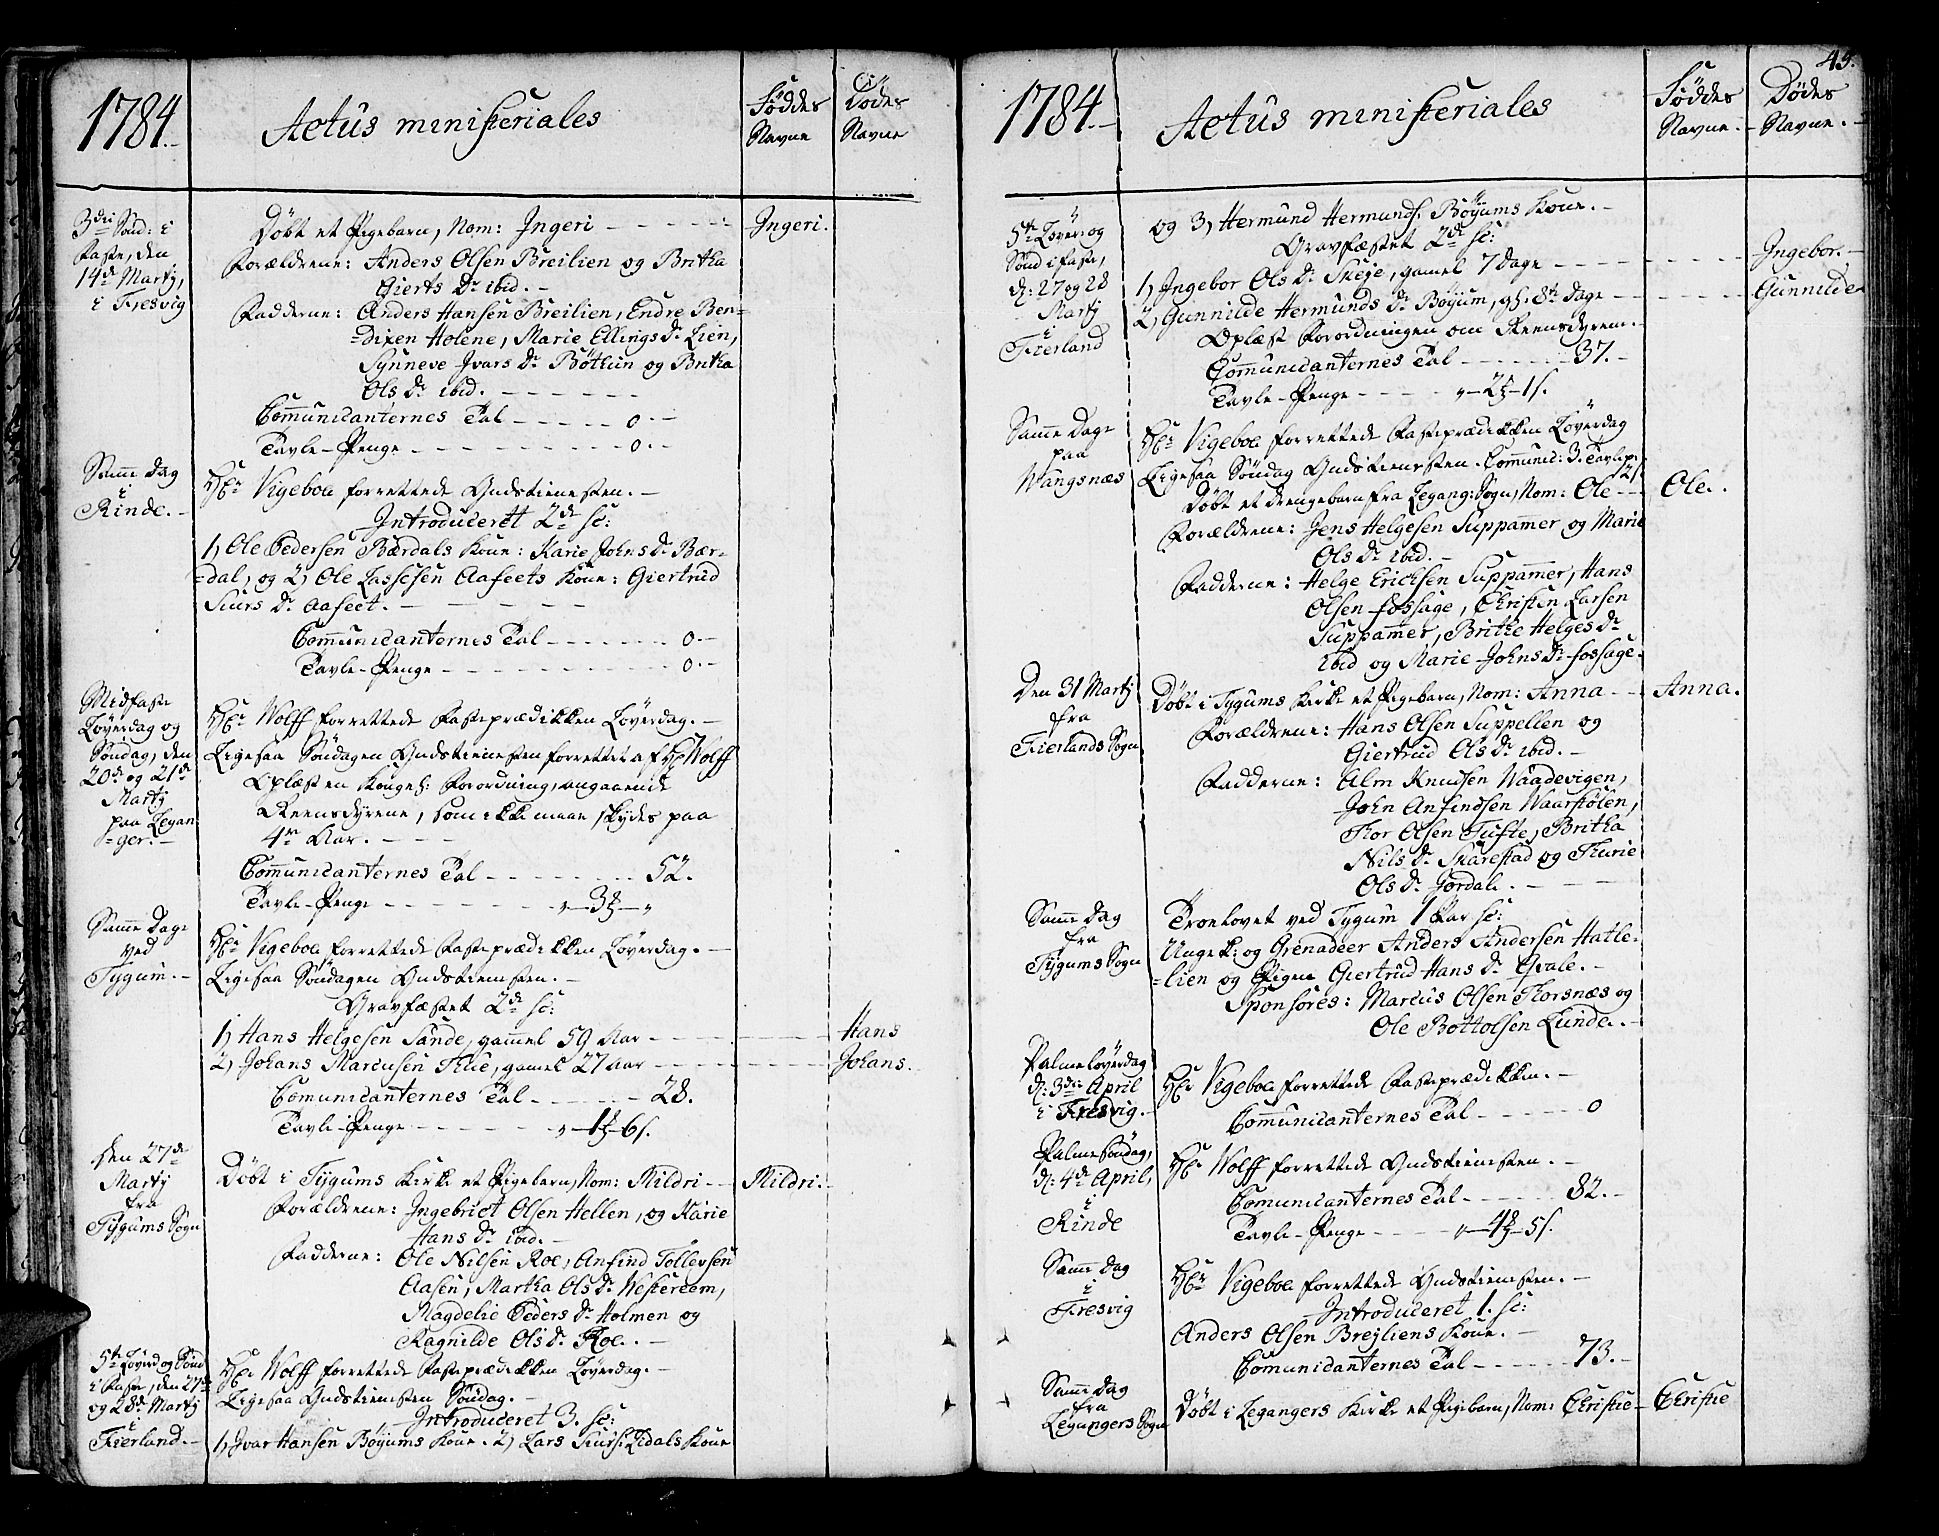 1784.
Actus ministeriales
Føddes
Navne
Dødes
Navne
3die Sönd: i
Faste, den
14de Martÿ,
i Fresvig
Döbt et Pigebarn, Nom: Ingeri
Ingeri.
Forældrene: Anders Olsen Breilien og Britha
Gierts Dr ibid. -
Fadderne: Anders Hansen Breilien, Endre Ben=
=dixen Holene, Marie Ellings Dr Lien,
Synneve Ivars Dr Böttun og Britha
Ols Dr ibid.
Comunicanternes Tal - - - 0 -
Tavle-Penge - - - 0 -
Samme dag
i
Rinde. -
Hr Vigeboe forrettede Gudstienesten. -
Introduceret 2de sc:
1, Ole Pedersen Bærdals Kone: Karie Johns Dr Bær-
=dal, og 2, Ole Lassesen Aafeets Kone: Giertrud
Siurs Dr Aafeet. -
Comunicanternes Tal - - - 0 -
Tavle-Penge - - - 0 -
Midfaste
Löverdag og
Söndag, den
20de og 21de
Martÿ
paa Legan
=ger. -
Hr Wolff forrettede Fasteprædikken Löverdag. -
Ligesaa Söndagen Gudstienesten forrettet af Hr Wolff
Oplæst en Kongel: Forordning, angaaende
Reensdyrene, som ikke maae skydes paa
4re Aar.
Comunicanternes Tal - - - 52.
Tavle-Penge - - - „ - 3 - „
Samme Dage
ved
Tygum. -
Hr Vigeboe forrettede Fasteprædikken Löverdag. -
Ligesaa Söndagen Gudstienesten. -
Gravfæstet 2de sc:
1, Hans Helgesen Sande, gammel 59 Aar - - -
Hans
2, Johans Marcusen Thue, gamel 27 aar - - -
Johans.
Comunicanternes Tal - - - 28.
Tavle-Penge - - - „ - 1 - 6 s.
den 27de
Martÿ
fra
Tygums Sogn
Döbt i Tygums Kirke et Pigebarn, Nom: Mildri - -
Mildri.
Forældrene: Ingebrict Olsen Hellen, og Karie
Hans Dr ibid. -
Fadderne: Ole Nilsen Roe, Anfind Tollevsen
Aasen, Martha Ols Dr Westereem,
Magdelie Peders Dr Holmen og
Ragnilde Ols Dr Roe. -
5te Löverd og Sönd
i Faste, den 27de
og 28de Martÿ
i
Fierland. -
Hr Wolff forrettede Fasteprædikken Löverdag. -
Ligesaa Gudstienesten Söndag. -
Introduceret 3. sc:
1, Ivar Hansen Böyums Kone. 2, Lars Siurs: Eidals Kone
45.
1784. -
Actus ministeriales
Føddes
Navne. -
Dødes
Navne. -
5te Löver: og
Sönd i faste,
d: 27 og 28
Martÿ
i
Fierland
og 3, Hermund Hermunds. Böyums Kone. -
Gravfæstet 2de sc:
1, Ingebor Ols Dr Skeje, gamel 7 dage - - -
Ingebor. -
2, Gunnilde Hermunds Dr Böyum, gl. 8te dage - - -
Gunnilde
Oplæst Forordningen om Reensdyrene. -
Comunicanternes Tal - - - 37. -
Tavle-Penge - - - „ - 2 - 1 s.
Samme Dage
paa
Wangsnæs
Hr Vigeboe forrettede Fasteprædikken Löverdag
Ligesaa Söndag Gudstienesten. Communic: 3. Tavlep:
2 s.
Döbt et drengebarn fra Legang: Sogn, Nom: Ole - -
Ole. .
Forældrene: Jens Helgesen Suppamer og Marie
Ols Dr ibid. -
Fadderne: Helge Ericksen Suppamer, Hans
Olsen Fossage, Christen Larsen
Suppammer, Brithe Helges Dr
ibid og Marie Johns Dr Fossage.
Den 31 Martÿ
fra
Fierlands Sogn
Döbt i Tygums Kirke et Pigebarn, Nom: Anna - -
Anna.
Forældrene: Hans Olsen Suppellen og
Giertrud Ols Dr ibid. -
Fadderne: Alm Knudsen Naadevigen,
John Anfindsen Waarstölen,
Thor Olsen Tufte, Britha
Nils Dr Skarestad og Thurie
Ols Dr Jordal. -
Samme dag
fra
Tygums Sogn
Troelovet ved Tygum 1 Par sc:
Ungek: og Grenadeer Anders Andersen Hatle-
=lien og Pigen Giertrud Hans Dr Qvale. -
Sponsores: Marcus Olsen Thorsnæs og
Ole Bottolsen Lunde. -
Palmelöverdag
d: 3die April
i Fresvig. -
Hr Vigeboe forrettede Fasteprædikken. -
Comunicanternes Tal - - - 0
Palmesöndag,
d: 4de April,
i
Rinde
Hr Wolff forrettede Gudstienesten. -
Comunicanternes Tal - - - 82. -
Tavle-Penge - - - „ - 4 - 5 s.
Samme dag
i
Fresvig
Hr Vigeboe forrettede Gudstienesten. -
Introduceret 1. sc:
Anders Olsen Brejliens Kone. -
Comunicanternes Tal - - - 73. -
Samme dag
fra
Legangers Sogn
Döbt i Legangers Kirke et Pigebarn, Nom: Christie -
Christie